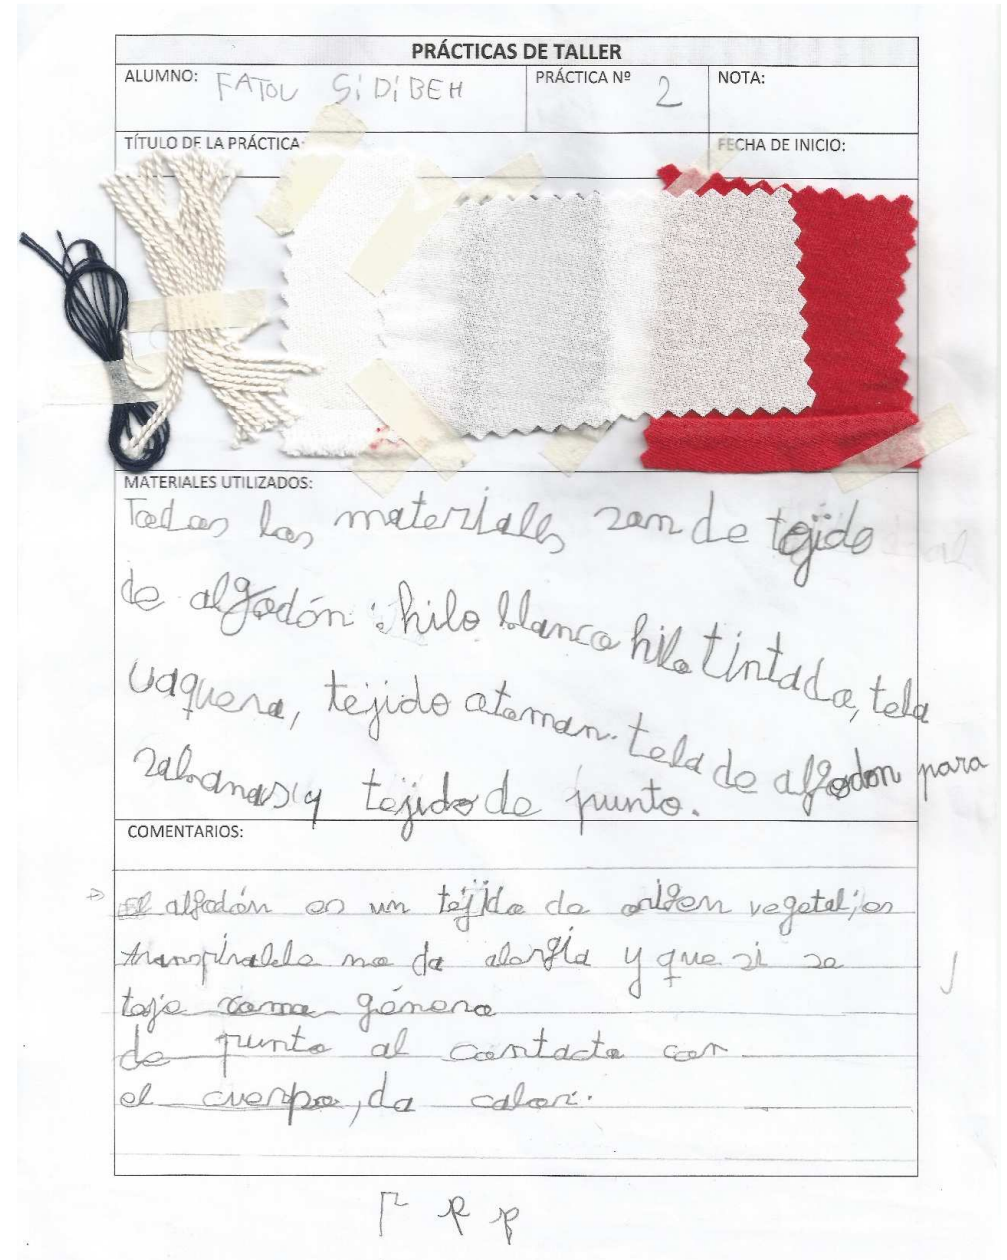 PRÁCTICAS DE TALLER
ALUMNO: FATOU SIDIBEH PRÁCTICA Nº 2 NOTA:
TÍTULO DE LA PRÁCTICA: FECHA DE INICIO:
MATERIALES UTILIZADOS:
Todos los materiales son de tejido
de algodón: hilo blanco hilo tintado, tela
vaquera, tejido otoman. tela de algodon para
sabanas y tejido de punto.
COMENTARIOS:
El algodón es un tejido de origen vegetal, es
transpirable no da alergia y que si se
teje como género
de punto al contacto con
el cuerpo, da calor.